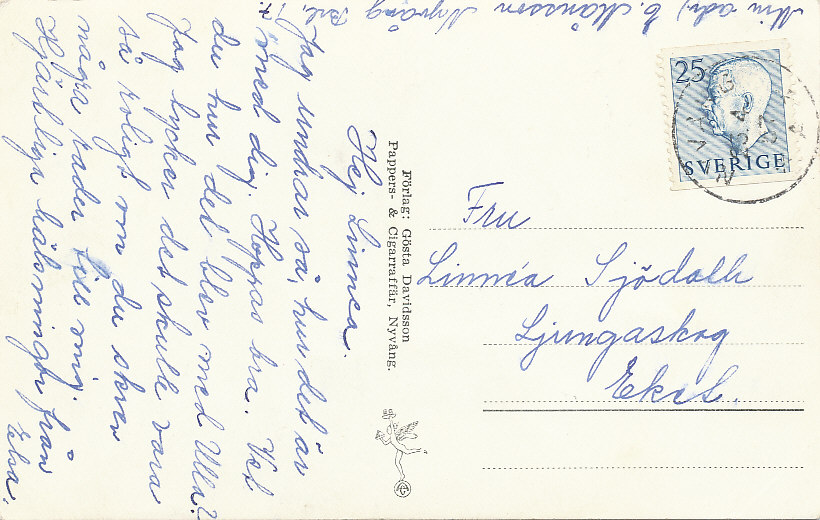 Min adr, E. Månsson Nyvång
Hej Linnea.
Jag undrar så, hur det är
med dig. Hoppas bra. Vet
du hur det blev med Ulla?
Jag tycker det skulle vara
så roligt om du skrev
några rader till mig.
Hjärtliga hälsningar från
Förlag: Gösta Davidsson
Pappers- & Cigarraffär, Nyvång.
25
SVERIGE
Fru
Linnéa Sjödahl
Ljungaskog